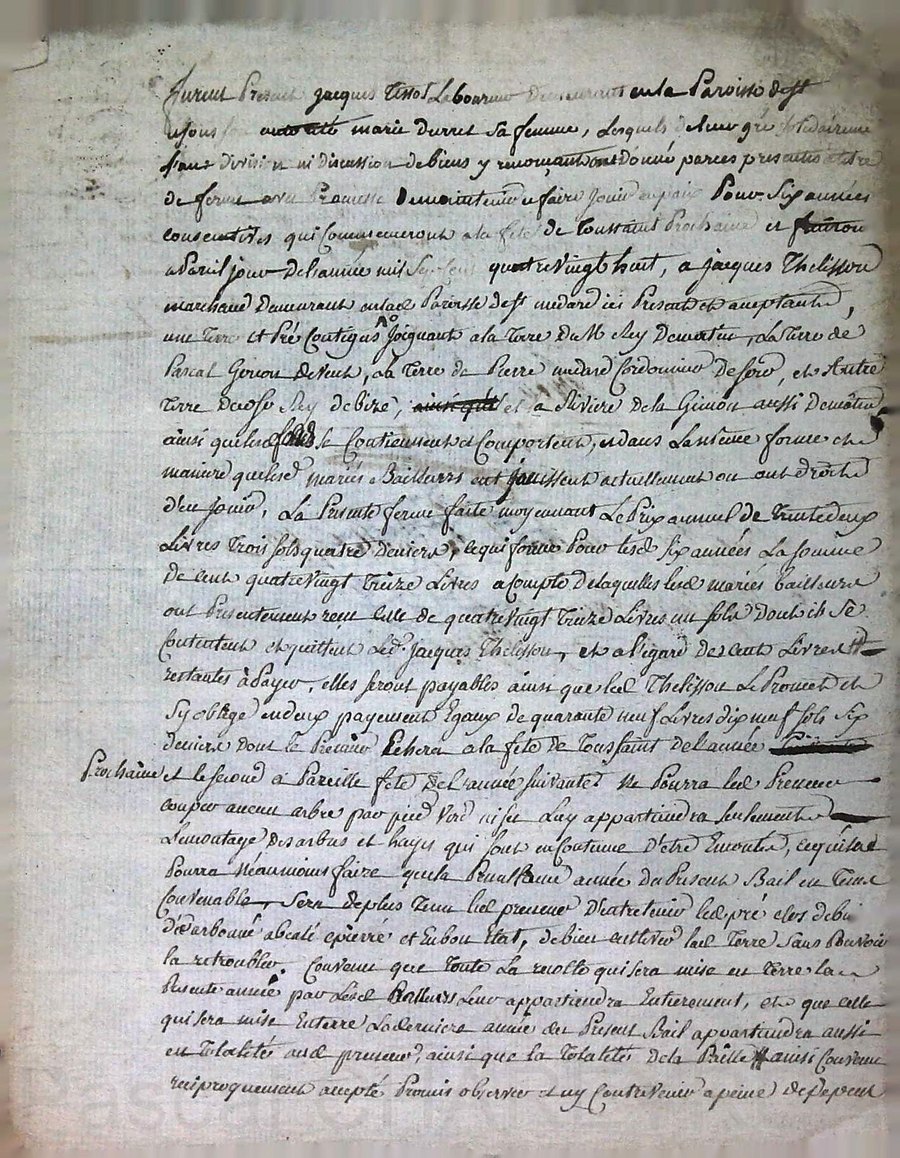 furent Presents Jacques Tissot Laboureur Demeurant en la Paroisse de St
marie Durret sa femme, Lesquels de leur gré solidairement
sans division ni discussion de biens y renonçant ont donné par ces presentes a titre
de ferme avec Promesse De maintenir et faire Jouir en paix Pour Six années
consecutives qui Commenceront a la fête de Toussaint Prochaine et finiron
a Pareil jour de l'année mil Sept Cent quatre vingt huit, a Jacques Thelisson
marchand Demeurant en lad Paroisse de St medard ici Present et acceptant
une Terre et Pré Contigus Joignant a la Terre de M Rey De matin, La Terre de
Pascal Goison de vent, La Terre de Pierre médard Cordonnier De soir, et Autre
Terre dud Sr Rey de bize, et la Rivière de la Gimon aussi De matin
ainsi que lesd fonds se Contiennent et Comportent, et dans La même forme et
maniere que lesd mariés Bailleurs en Jouissent actuellement ou ont droit
d'en Jouir, La Presente ferme faite moyennant Le Prix annuel de Trente deux
Livres Trois sols quatre Deniers, ce qui forme Pour lesd Six années La somme
De Cent quatre vingt Treize Livres a compte de laquelle lesd mariés bailleurs
ont Presentement reçu celle de quatre vingt Treize Livres un sols Dont ils se
Contentent et quittent Led Jacques Thelisson, et a l'egard des cent Livres
restantes à Payer, elles seront payables ainsi que led Thelisson Le Promet et
s'y oblige en deux payements Egaux de quarante neuf Livres dix neuf sols six
deniers dont le Premier Echera a la fête de Toussaint de l'année
Prochaine et le second à Pareille fête de l'année suivante. Ne Pourra led Preneur
couper aucun arbre par pied Verd ni sec Luy appartiendra seulement
L'emontage Des arbres et hayes qui sont en Coutume D'être Emontés, ce qu'il ne
Pourra Néanmoins faire que la Penultieme année du Present Bail en Tems
Convenable, Sera de plus Tenu led preneur D'entretenir led pré clos de bu
épierré et En bon Etat, de bien cultiver lad Terre Sans Pouvoir
la retroubler. Convenu que Toute La recolte qui sera mise en Terre la
Presente année par Lesd Bailleurs Leur appartiendra Entierement, et que celle
qui sera mise En terre La derniere année du Present Bail appartiendra aussi
en Totalité aud preneur, ainsi que la Totalité de la Paille ainsi Convenu
reciproquement accepté Promis observer et n'y Contrevenir a peine de Depens